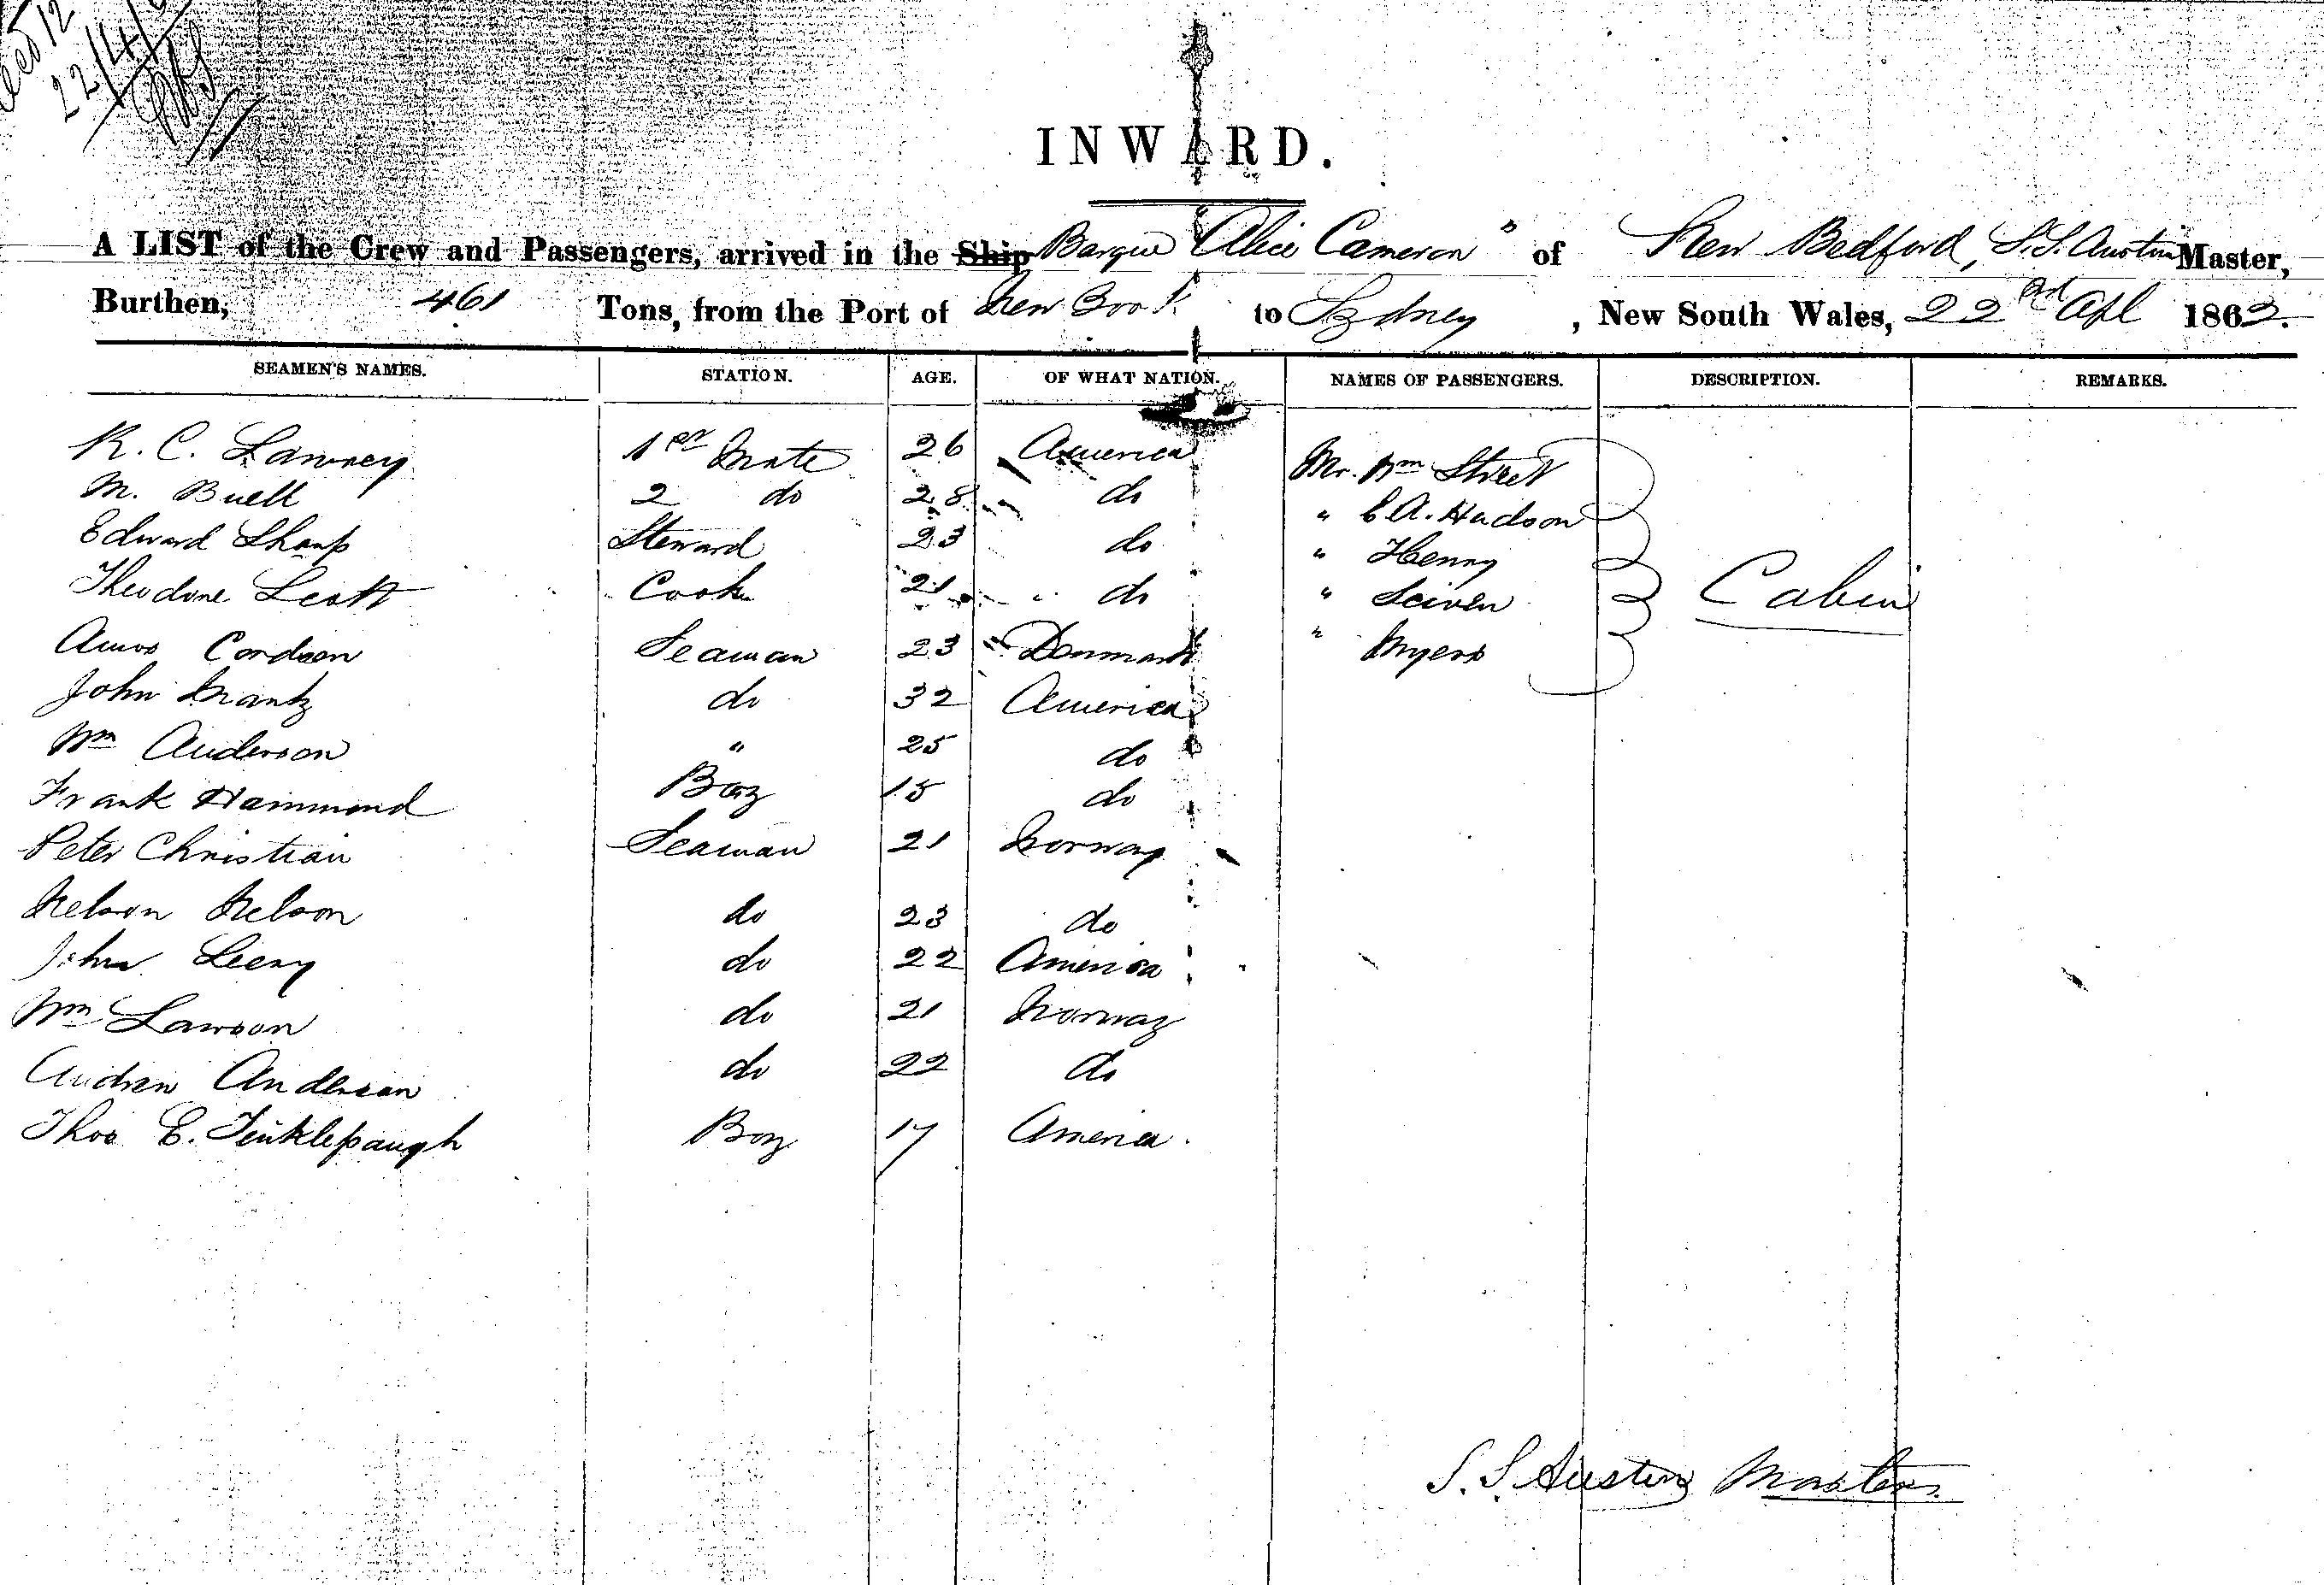 22/4/
INWARD.
A LIST of the Crew and Passengers, arrived in the Ship Barque Alice Cameron" of New Bedford, S.S. Austin Master,
Burthen, 461 Tons, from the Port of New to Sydney, New South Wales, 22nd Apl 1863.
SEAMEN'S NAMES. STATION. AGE. OF WHAT NATION. NAMES OF PASSENGERS. DESCRIPTION. REMARKS.
R. C. 1st Mate 26 America Mr. Wm Street
M. Buell 2 do 28 do " C.A. Hudson
Edward Sharp Steward 23 do " Henry
Theodore Scott Cook 21 do " Cabin
Amos Cordsen Seaman 23 Denmark " Myers
John do 32 America
Wm Anderson " 25 do
Frank Hammond Boy 15 do
Peter Christian Seaman 21 Norway
Nelson Nelson do 23 do
John Leery do 22 America
Wm Lawson do 21 Norway
Andrew Anderson do 22 do
Thos E. Finklepaugh Boy 17 America.
S. S. Austin Master.